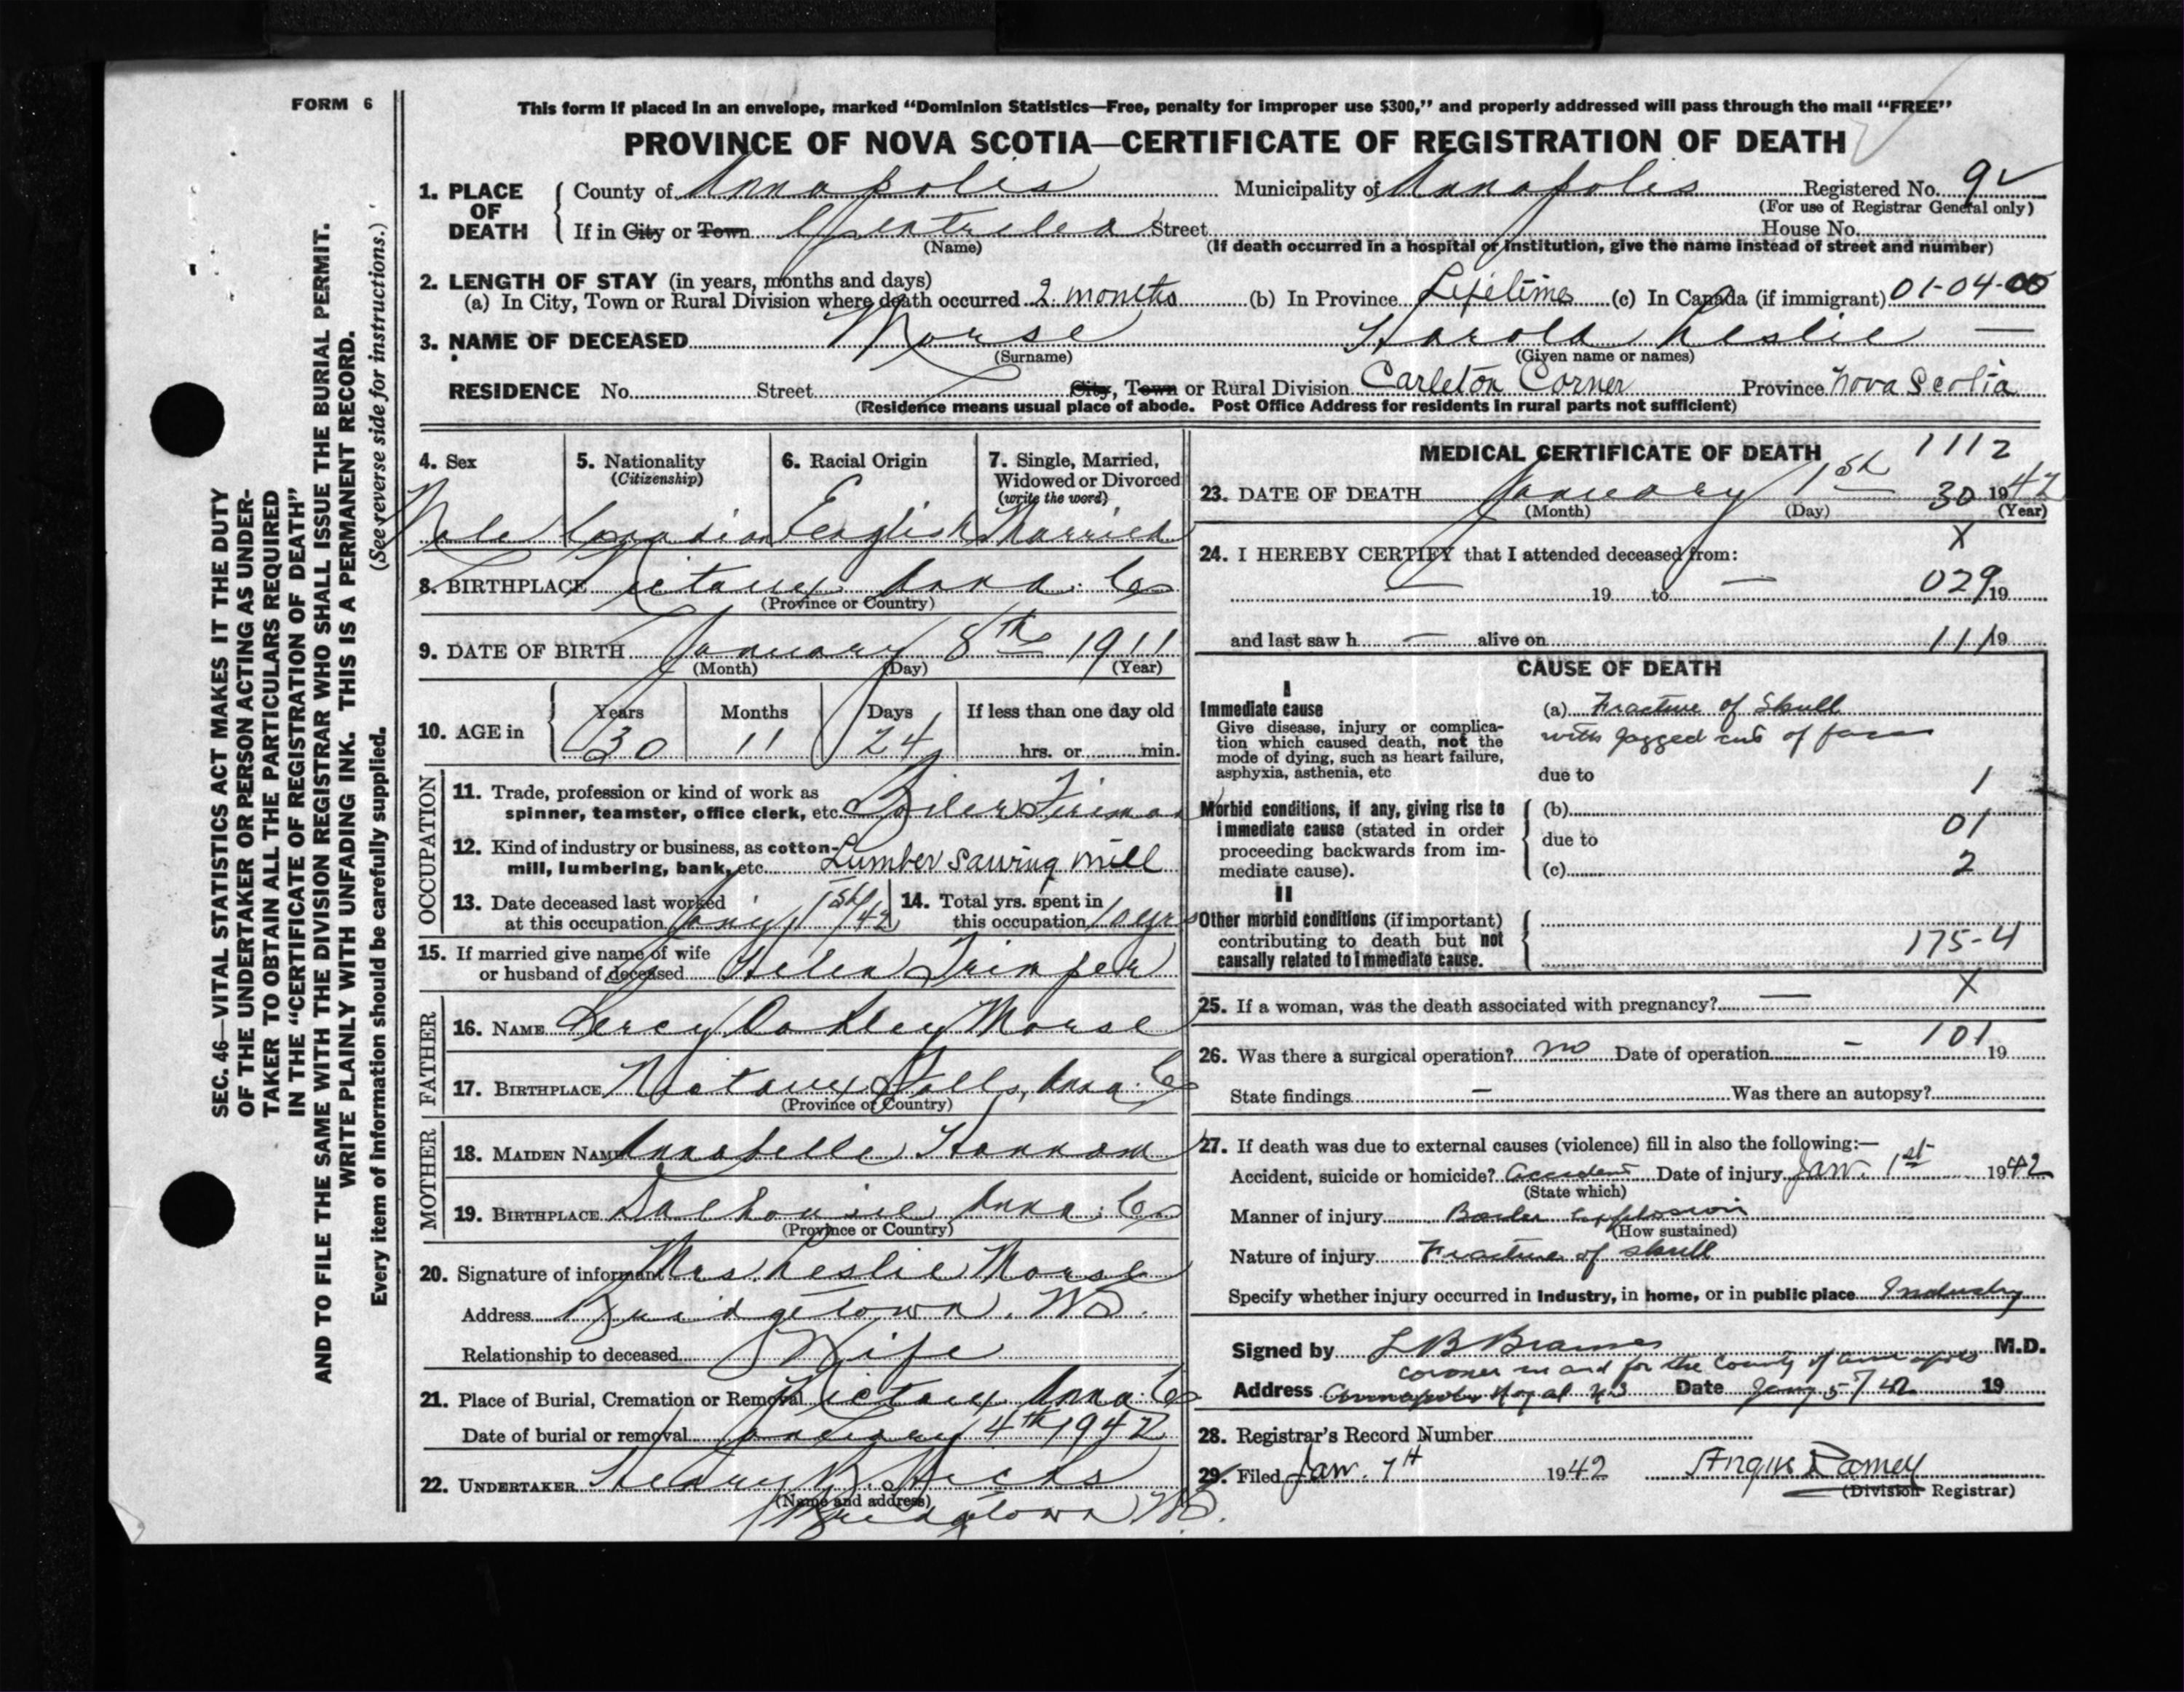 FORM 6
This form if placed in an envelope, marked “Dominion Statistics—Free, penalty for improper use $300,” and properly addressed will pass through the mail “FREE”
PROVINCE OF NOVA SCOTIA—CERTIFICATE OF REGISTRATION OF DEATH
1. PLACE OF DEATH County of Annapolis Municipality of Annapolis Registered No. 9
(For use of Registrar General only)
If in City or Town Street House No.
(Name) (If death occurred in a hospital or institution, give the name instead of street and number)
2. LENGTH OF STAY (in years, months and days)
(a) In City, Town or Rural Division where death occurred 2 months (b) In Province Lifetime (c) In Canada (if immigrant) 01-04-00
3. NAME OF DECEASED Morse Harold Leslie —
(Surname) (Given name or names)
RESIDENCE No. Street City, Town or Rural Division Carleton Corner Province Nova Scotia
(Residence means usual place of abode. Post Office Address for residents in rural parts not sufficient)
4. Sex 5. Nationality (Citizenship) 6. Racial Origin 7. Single, Married, Widowed or Divorced (write the word)
Male Canadian English Married
8. BIRTHPLACE Nictaux Anna. Co
(Province or Country)
9. DATE OF BIRTH January 8th 1911
(Month) (Day) (Year)
10. AGE in Years Months Days If less than one day old
30 11 24 hrs. or min.
OCCUPATION
11. Trade, profession or kind of work as
spinner, teamster, office clerk, etc. Boiler Fireman
12. Kind of industry or business, as cotton-
mill, lumbering, bank, etc. Lumber sawing mill
13. Date deceased last worked
at this occupation Jan'y 1st/42
14. Total yrs. spent in
this occupation 10 yrs
15. If married give name of wife
or husband of deceased Helen Trimper
FATHER
16. NAME Percy Oakley Morse
17. BIRTHPLACE Nictaux Falls, Anna. Co
(Province or Country)
MOTHER
18. MAIDEN NAME Annabelle Hannam
19. BIRTHPLACE Dalhousie Anna. Co
(Province or Country)
20. Signature of informant Mrs. Leslie Morse
Address Bridgetown, N.S.
Relationship to deceased Wife
21. Place of Burial, Cremation or Removal Nictaux Anna. Co
Date of burial or removal January 4th 1942
22. UNDERTAKER Henry B. Hicks
(Name and address)
Bridgetown N.S.
MEDICAL CERTIFICATE OF DEATH 1112
23. DATE OF DEATH January 1st 30 1942
(Month) (Day) (Year)
24. I HEREBY CERTIFY that I attended deceased from: X
— 19 to — 029 19
and last saw h — alive on 11 19
CAUSE OF DEATH
I
Immediate cause
Give disease, injury or complica-
tion which caused death, not the
mode of dying, such as heart failure,
asphyxia, asthenia, etc
(a) Fracture of Skull
with jagged cuts of face
due to 1
Morbid conditions, if any, giving rise to
immediate cause (stated in order
proceeding backwards from im-
mediate cause).
(b)
due to 01
(c) 2
II
Other morbid conditions (if important)
contributing to death but not
causally related to immediate cause.
175-4
X
25. If a woman, was the death associated with pregnancy? —
26. Was there a surgical operation? no Date of operation - 101 19
State findings - Was there an autopsy?
27. If death was due to external causes (violence) fill in also the following:—
Accident, suicide or homicide? Accident Date of injury Jan. 1st 1942
(State which)
Manner of injury Boiler explosion
(How sustained)
Nature of injury Fracture of skull
Specify whether injury occurred in Industry, in home, or in public place Industry
Signed by L B M.D.
Coroner in and for the County of Annapolis
Address Annapolis Royal N S Date Jany 5/42 19
28. Registrar's Record Number
29. Filed Jan. 7th 1942 Angus Ramey
(Division Registrar)
SEC. 46—VITAL STATISTICS ACT MAKES IT THE DUTY
OF THE UNDERTAKER OR PERSON ACTING AS UNDER-
TAKER TO OBTAIN ALL THE PARTICULARS REQUIRED
IN THE “CERTIFICATE OF REGISTRATION OF DEATH”
AND TO FILE THE SAME WITH THE DIVISION REGISTRAR WHO SHALL ISSUE THE BURIAL PERMIT.
WRITE PLAINLY WITH UNFADING INK. THIS IS A PERMANENT RECORD.
Every item of information should be carefully supplied. (See reverse side for instructions.)